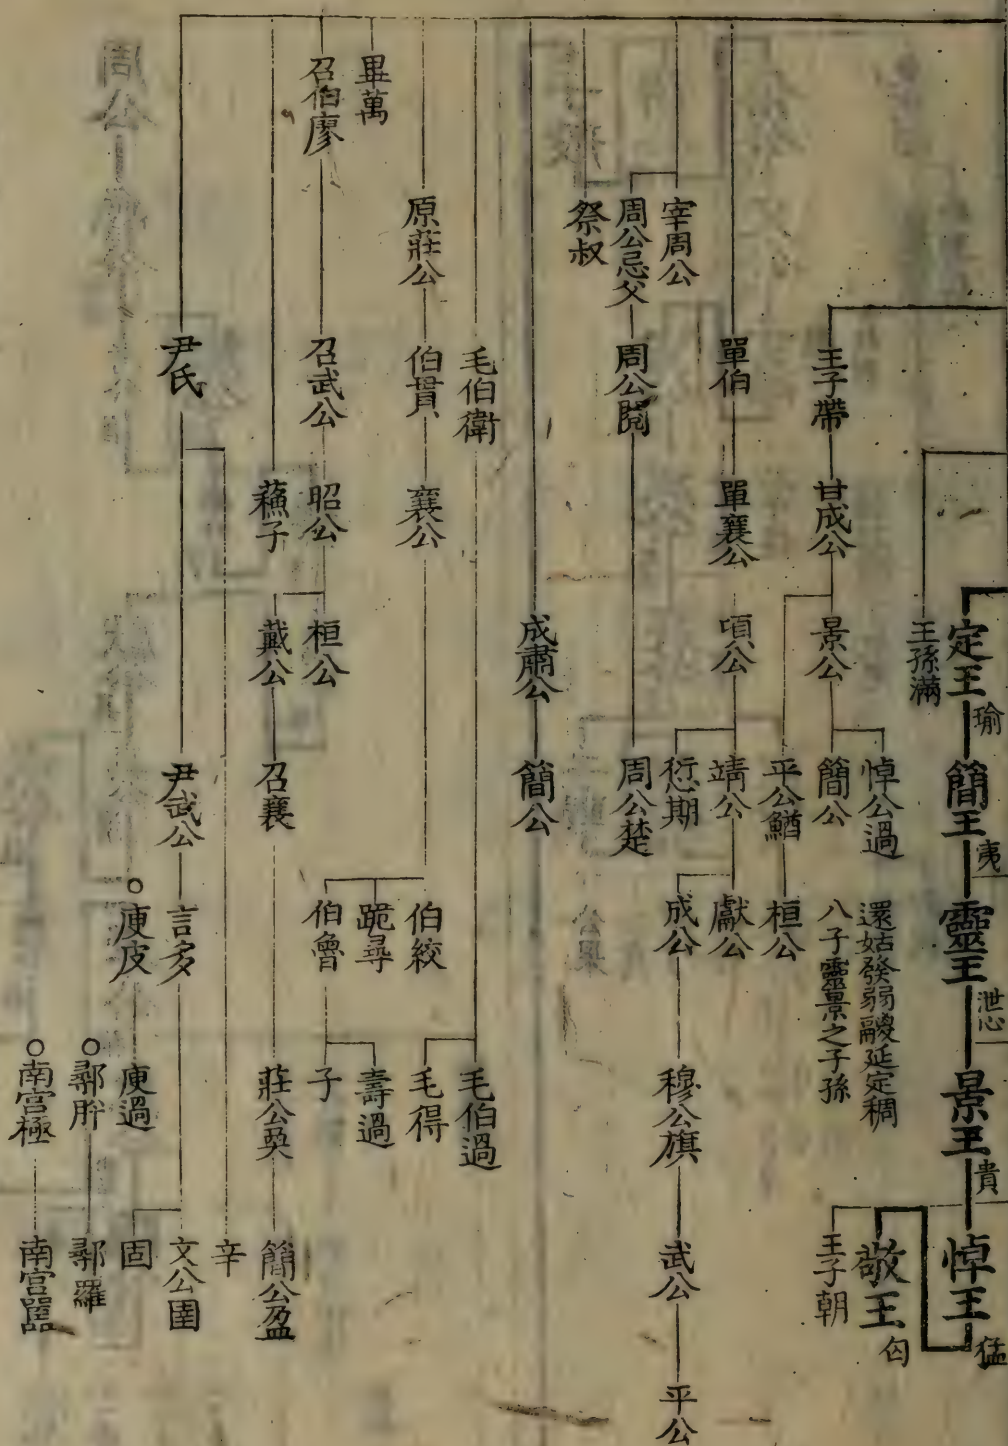 定王 瑜
簡王 夷
靈王 泄心
景王 貴
悼王 猛
敬王 匄
王子朝
王孫滿
王子帶
甘成公
景公
悼公過
簡公
還姑發弱鬷延定稠
八子靈景之子孫
平公鰌
桓公
單伯
單襄公
頃公
靖公
愆期
獻公
成公
穆公旗
武公
平公
宰周公
周公忌父
周公閱
周公楚
祭叔
成肅公
簡公
毛伯衛
毛伯過
毛得
原莊公
伯貫
襄公
伯絞
跪尋
伯魯
壽過
子
畢萬
召伯廖
召武公
昭公
桓公
戴公
召襄
莊公奐
簡公盈
蘓子
尹氏
尹武公
言多
文公圉
固
辛
庾皮
庾過
鄩肸
鄩羅
南宫極
南宫嚚